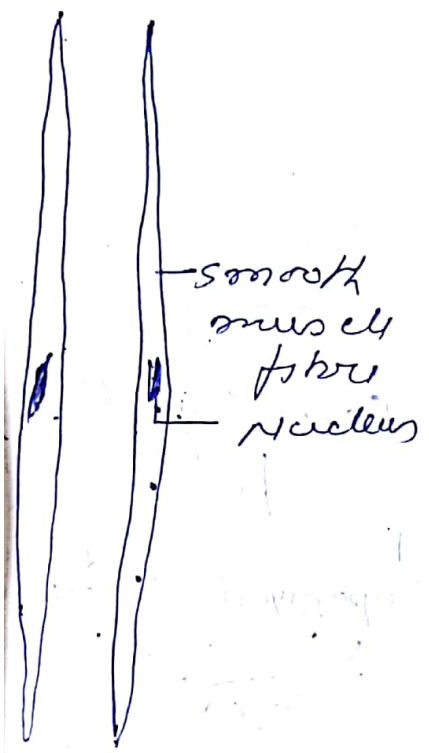 Smooth
muscle
fibre
Nucleus